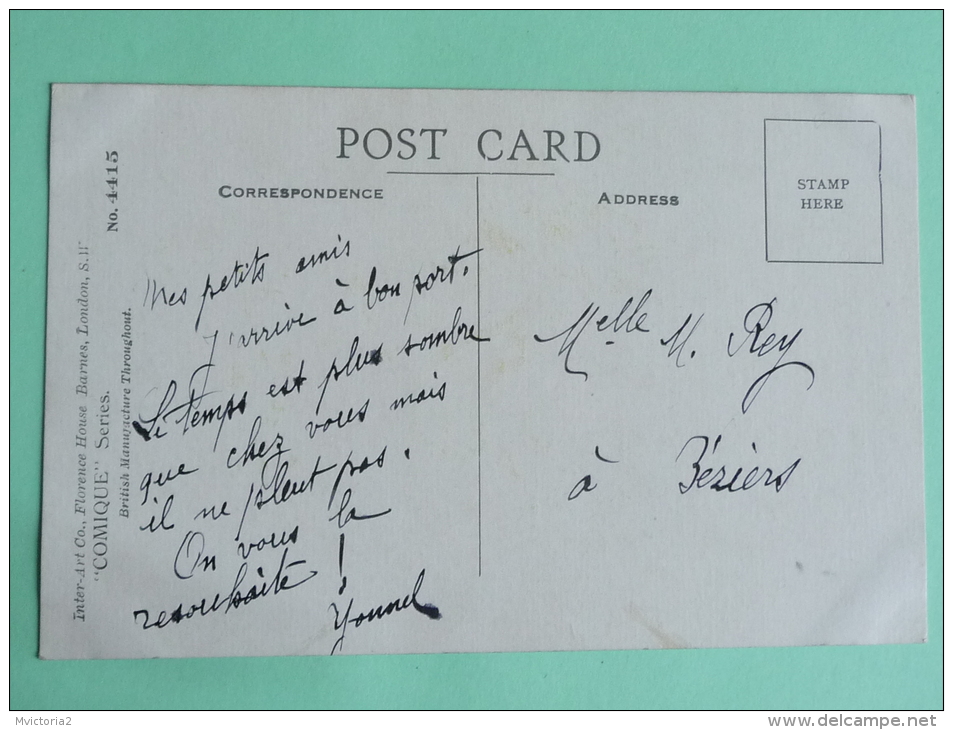 POST CARD
CORRESPONDENCE
ADDRESS
STAMP
HERE
Inter-Art Co., Florence House Barnes, London, S.W
"COMIQUE" Series.
No. 4415
British Manufacture Throughout.
Mes petits amis
J'arrive à bon port.
Le temps est plus sombre
que chez vous mais
il ne pleut pas.
On vous la
resouhaite !
Melle M. Rey
à Béziers
Mvictoria2
www.delcampe.net